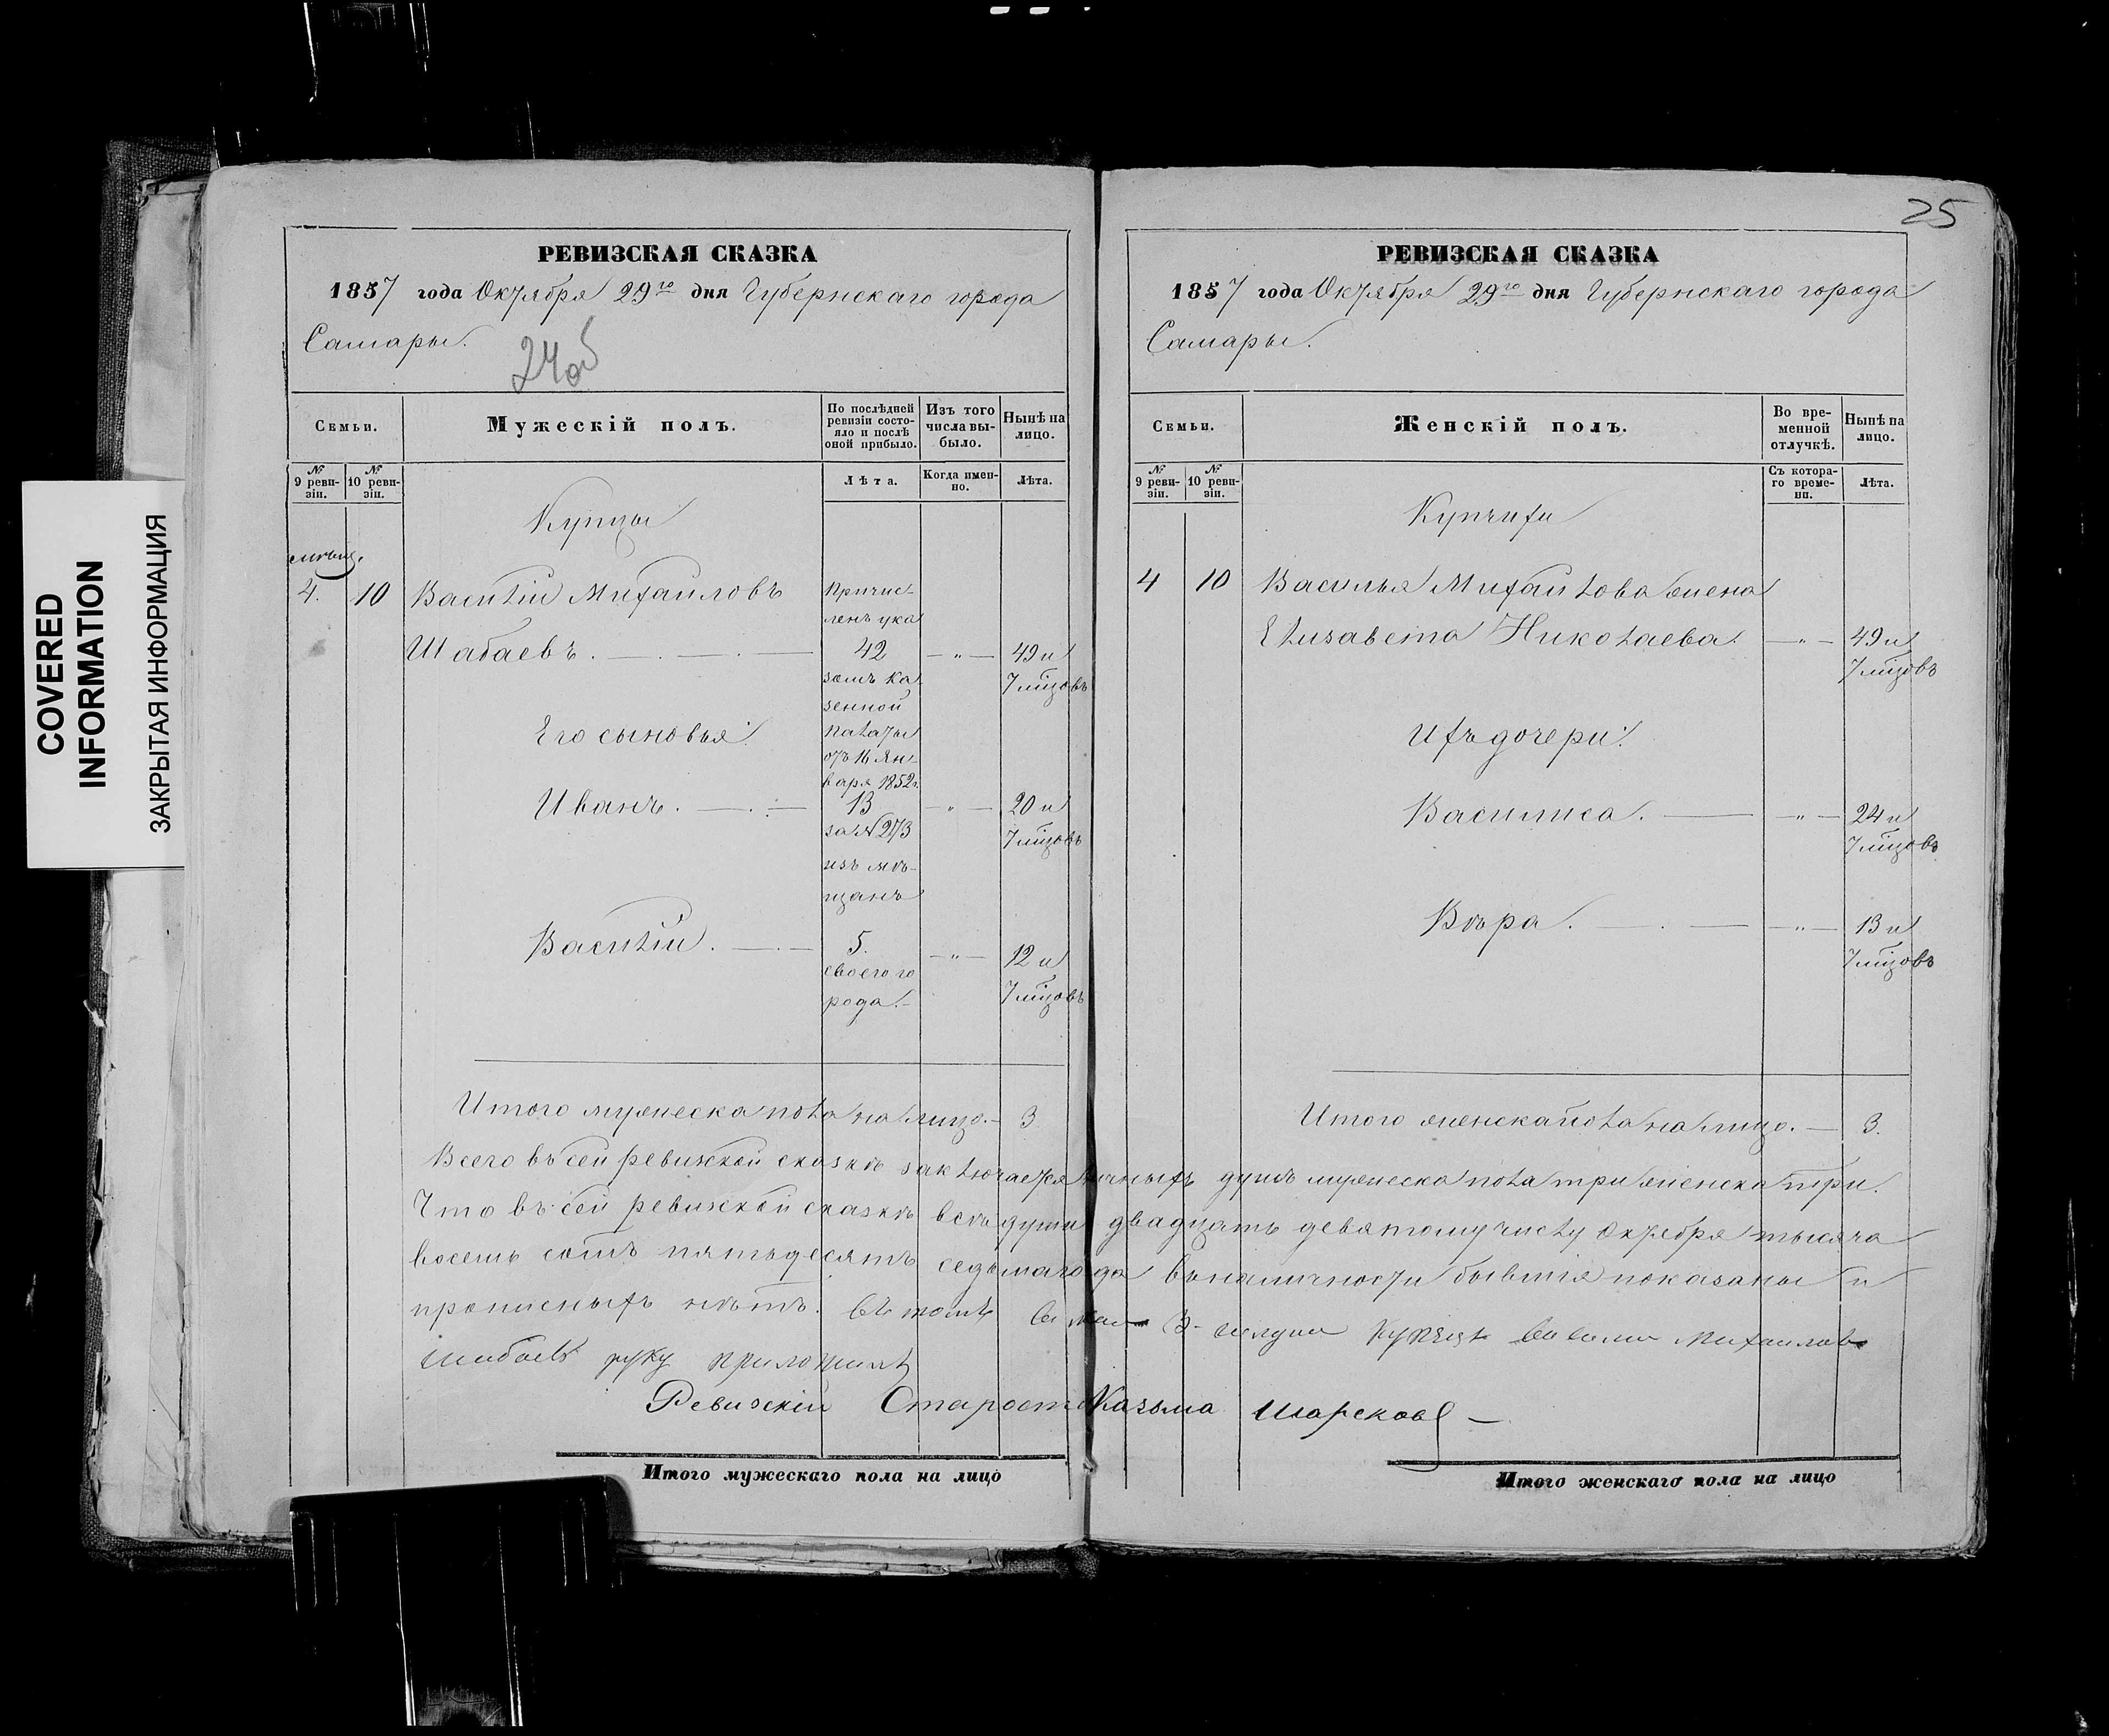 COVERED
INFORMATION
ЗАКРЫТАЯ ИНФОРМАЦИЯ
РЕВИЗСКАЯ СКАЗКА
1857 года Октября 29го дня Губернскаго города
Самары.
24об
Семьи.
Мужескій полъ.
По послѣдней
ревизіи состо-
яло и послѣ
оной прибыло.
Изъ того
числа вы-
было.
Нынѣ на
лицо.
№
9 реви-
зіи.
№
10 реви-
зіи.
Лѣта.
Когда имен-
но.
Лѣта.
Купцы
4. 10 Василій Михайловъ
Шабаевъ.
Причис-
ленъ ука
42
зомъ ка
зенной
палаты
отъ 16 Ян-
варя 1852г.
49 и
7 мѣцовъ
Его сыновья:
Иванъ. 13 20 и
за № 273 7 мѣцовъ
изъ мѣ-
щанъ
Василій. 5. 12 и
своего го 7 мѣцовъ
рода.
Итого мужеска пола на лицо. 3
РЕВИЗСКАЯ СКАЗКА
25
1857 года Октября 29го дня Губернскаго города
Самары.
Семьи.
Женскій полъ.
Во вре-
менной
отлучкѣ.
Нынѣ на
лицо.
№
9 реви-
зіи.
№
10 реви-
зіи.
Съ котора-
го време-
ни.
Лѣта.
Купчихи
4 10 Василья Михайлова жена
Елизавета Николаева. 49 и
7 мѣцовъ
Ихъ дочери:
Василиса. 24 и
7 мѣцовъ
Вѣра. 13 и
7 мѣцовъ
Итого женска пола на лицо. 3.
Всего въ сей ревизской сказкѣ заключается личныхъ душъ мужеска пола три женска три.
Что въ сей ревизской сказкѣ всѣ души двадцать девятому числу Октября тысяча
восемь сотъ пятьдесятъ седьмаго года въ наличности бывшія показаны и
прописныхъ нѣтъ. въ томъ 3 гилдии Купецъ Михаиловъ
Шабаевъ руку приложилъ
Ревизский Староста Казьма
Итого мужескаго пола на лицо
Итого женскаго пола на лицо